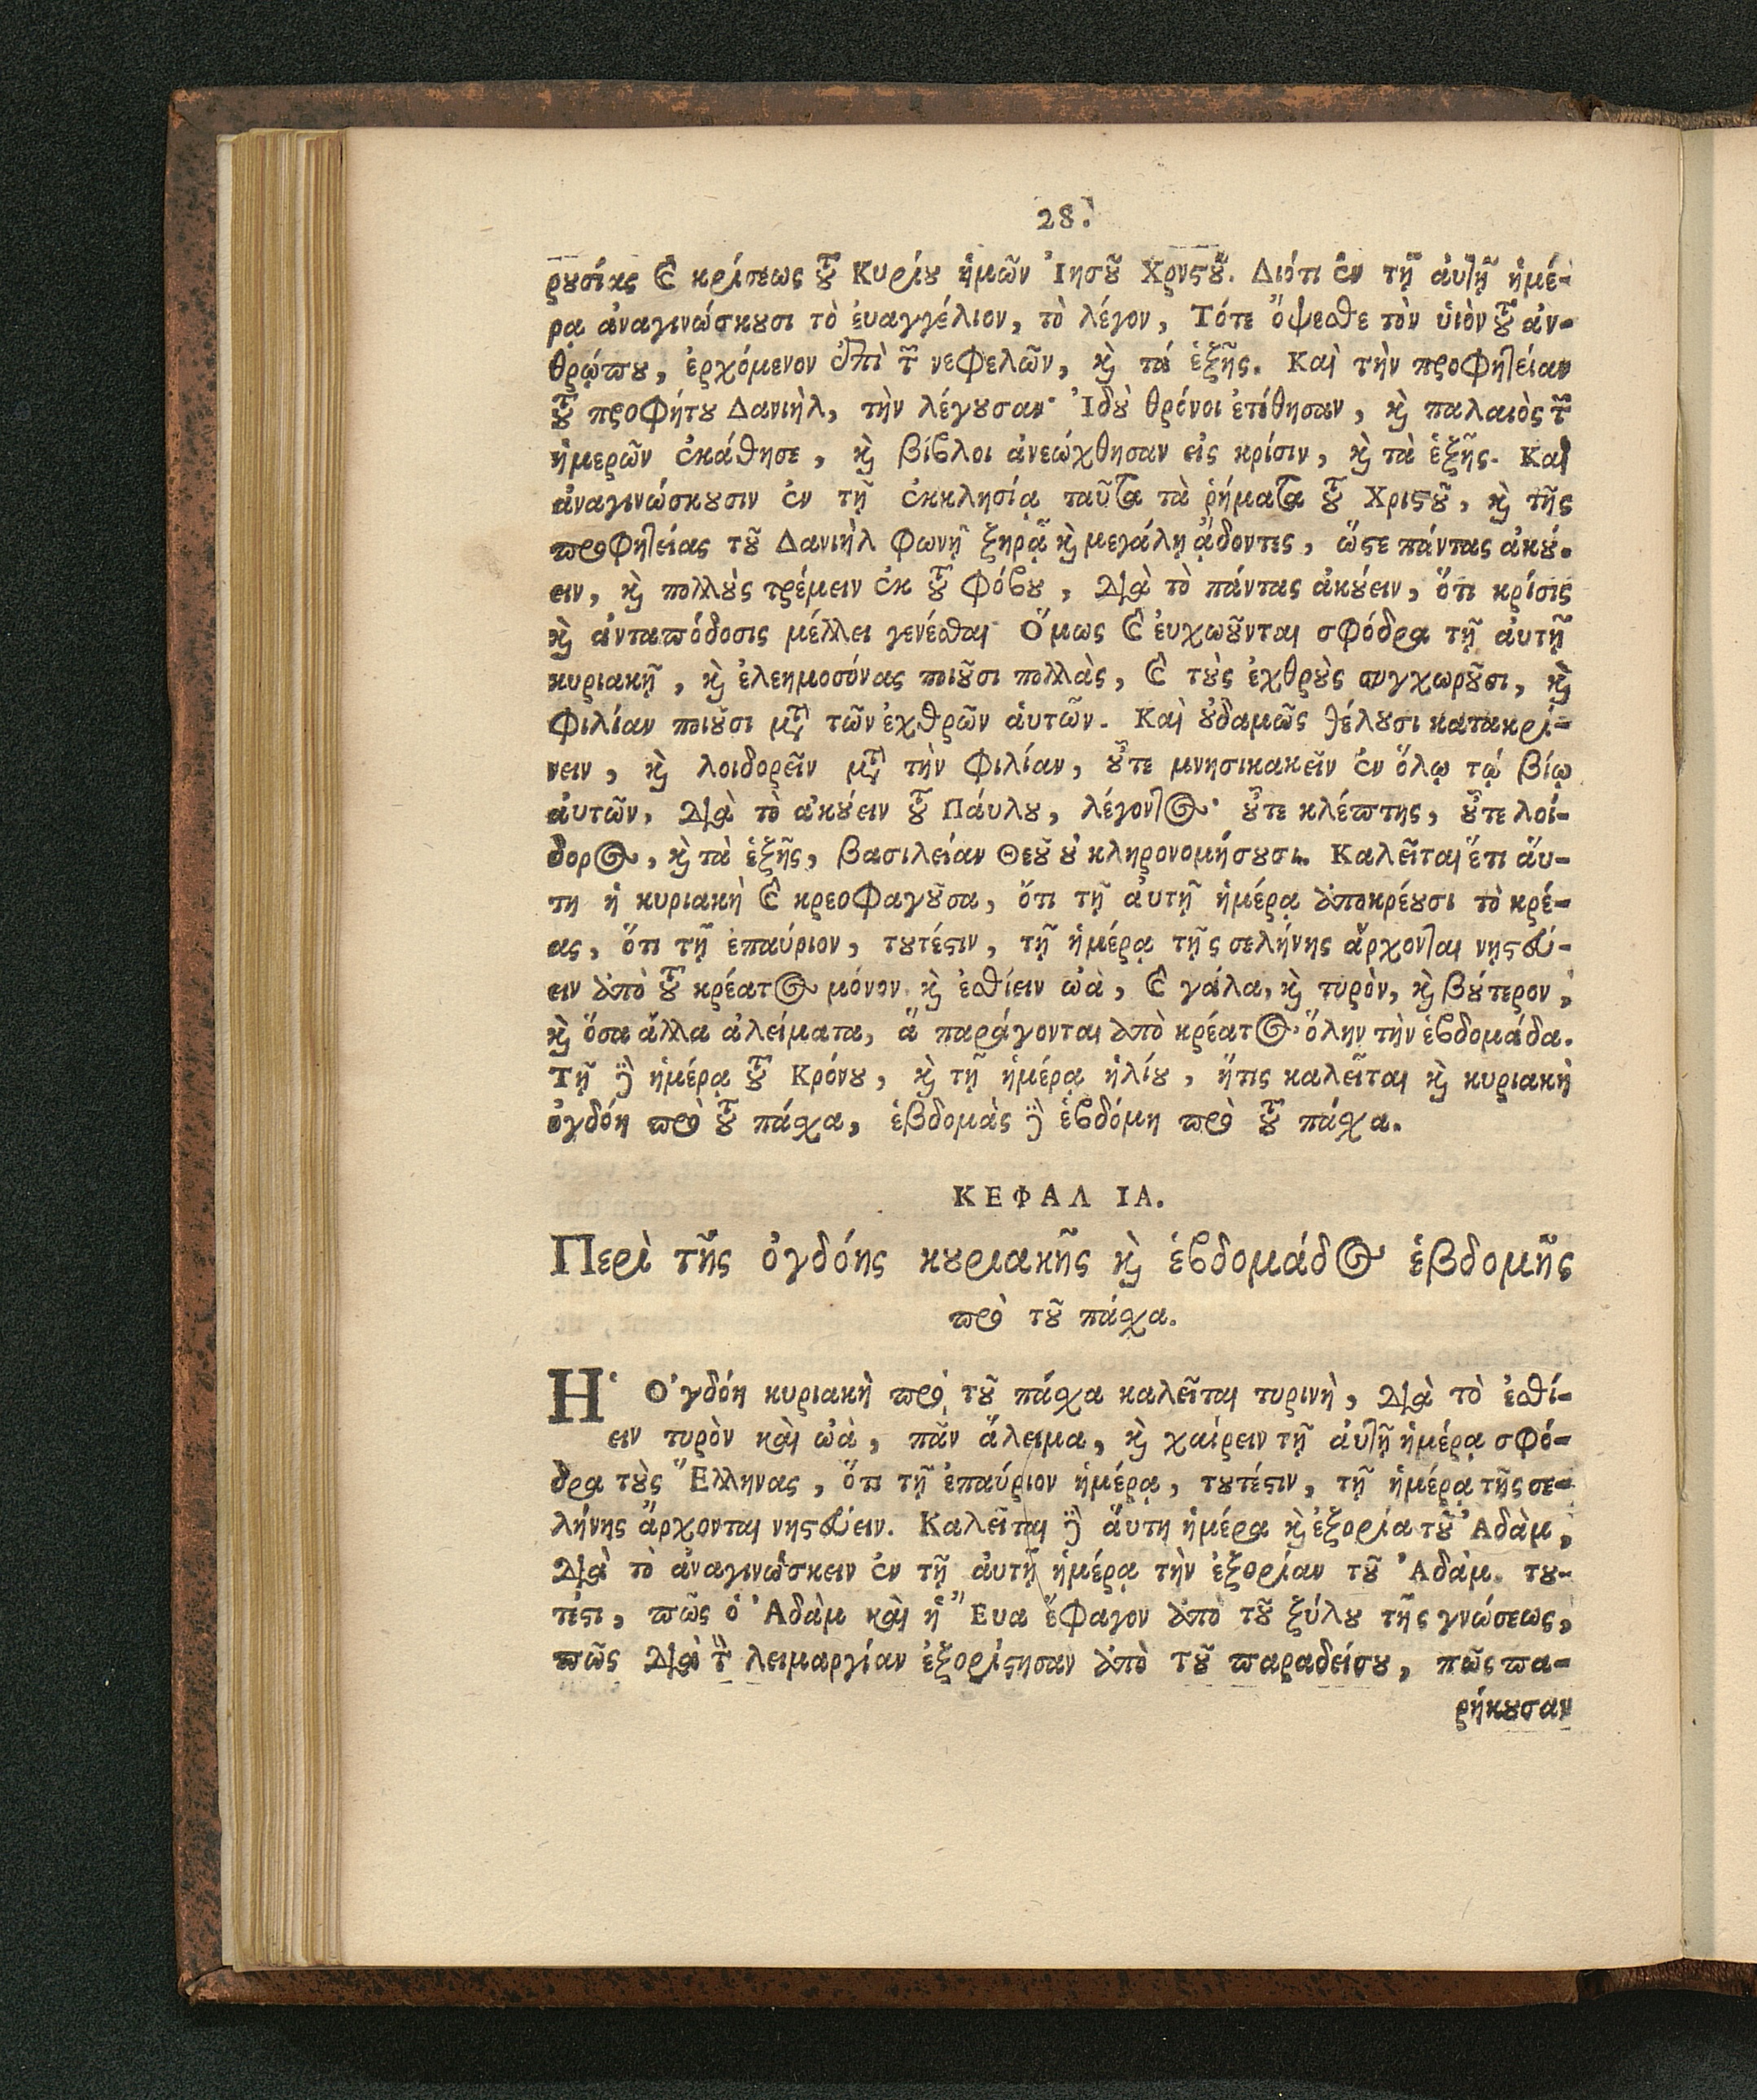 28.
ρουσίας καὶ κρίσεως τοῦ Κυρίου ἡμῶν Ἰησοῦ Χρηστοῦ. Διότι ἐν τῇ ἀυτῇ ἡμέ-
ρᾳ ἀναγινώσκουσι τὸ ἐυαγγέλιον, τὸ λέγον, Τότε ὄψεσθε τὸν ὑιὸν τοῦ ἀν-
θρώπου, ἐρχόμενον ἐπὶ τῶν νεφελῶν, καὶ τὰ ἑξῆς. Καὶ τὴν προφητείαν
τοῦ προφήτου Δανιὴλ, τὴν λέγουσαν· Ἰδοὺ θρόνοι ἐτίθησαν, καὶ παλαιὸς τῶν
ἡμερῶν ἐκάθησε, καὶ βίβλοι ἀνεώχθησαν εἰς κρίσιν, καὶ τὰ ἑξῆς. Καὶ
ἀναγινώσκουσιν ἐν τῇ ἐκκλησίᾳ ταῦτα τὰ ῥήματα τοῦ Χριστοῦ, καὶ τῆς
προφητείας τοῦ Δανιὴλ φωνῇ ξηρᾷ καὶ μεγάλῃ ᾄδοντες, ὥστε πάντας ἀκού-
ειν, καὶ πολλοὺς τρέμειν ἐκ τοῦ φόβου, διὰ τὸ πάντας ἀκούειν, ὅτι κρίσις
καὶ ἀνταπόδοσις μέλλει γενέσθαι· Ὅμως καὶ ἐυχωοῦνται σφόδρα τῇ ἀυτῇ
κυριακῇ, καὶ ἐλεημοσύνας ποιοῦσι πολλὰς, καὶ τοὺς ἐχθροὺς συγχωροῦσι, καὶ
φιλίαν ποιοῦσι μετὰ τῶν ἐχθρῶν ἀυτῶν. Καὶ οὐδαμῶς θέλουσι κατακρί-
νειν, καὶ λοιδορεῖν μετὰ τὴν φιλίαν, οὔτε μνησικακεῖν ἐν ὅλῳ τῷ βίῳ
ἀυτῶν, διὰ τὸ ἀκούειν τοῦ Πάυλου, λέγοντος· οὔτε κλέπτης, οὔτε λοί-
δορος, καὶ τὰ ἑξῆς, βασιλείαν Θεοῦ οὐ κληρονομήσουσι. Καλεῖται ἔτι ἄυ-
τη ἡ κυριακὴ καὶ κρεοφαγοῦσα, ὅτι τῇ ἀυτῇ ἡμέρᾳ ἀποκρέουσι τὸ κρέ-
ας, ὅτι τῇ ἐπαύριον, τουτέστιν, τῇ ἡμέρᾳ τῆς σελήνης ἄρχονται νηστεύ-
ειν ἀπὸ τοῦ κρέατος μόνον. καὶ ἐσθίειν ὠὰ, καὶ γάλα, καὶ τυρὸν, καὶ βούτερον,
καὶ ὅσα ἄλλα ἀλείματα, ἃ παράγονται ἀπὸ κρέατος· ὅλην τὴν ἑβδομάδα.
Τῇ δὲ ἡμέρᾳ τοῦ Κρόνου, καὶ τῇ ἡμέρᾳ ἡλίου, ἥτις καλεῖται καὶ κυριακὴ
ὀγδόη πρὸ τοῦ πάσχα, ἑβδομὰς δὲ ἑβδόμη πρὸ τοῦ πάσχα.
ΚΕΦΑΛ ΙΑ.
Περὶ τῆς ὀγδόης κουριακῆς καὶ ἑβδομάδος ἑβδομῆς
πρὸ τοῦ πάσχα.
Ἡ Ὀγδόη κυριακὴ πρὸ τοῦ πάσχα καλεῖται τυρινὴ, διὰ τὸ ἐσθί-
ειν τυρὸν καὶ ὠὰ, πᾶν ἄλειμα, καὶ χαίρειν τῇ ἀυτῇ ἡμέρᾳ σφό-
δρα τοὺς Ἕλληνας, ὅτι τῇ ἐπαύριον ἡμέρᾳ, τουτέστιν, τῇ ἡμέρᾳ τῆς σε-
λήνης ἄρχονται νηστεύειν. Καλεῖται δὲ ἄυτη ἡμέρα καὶ ἐξορία τοῦ Ἀδὰμ,
διὰ τὸ ἀναγινώσκειν ἐν τῇ ἀυτῇ ἡμέρᾳ τὴν ἐξορίαν τοῦ Ἀδὰμ. του-
τέστι, πῶς ὁ Ἀδὰμ καὶ ἡ Ἔυα ἔφαγον ἀπὸ τοῦ ξύλου τῆς γνώσεως,
πῶς διὰ τὴν λειμαργίαν ἐξορίστησαν ἀπὸ τοῦ παραδείσου, πῶς πα-
ρήκουσαν